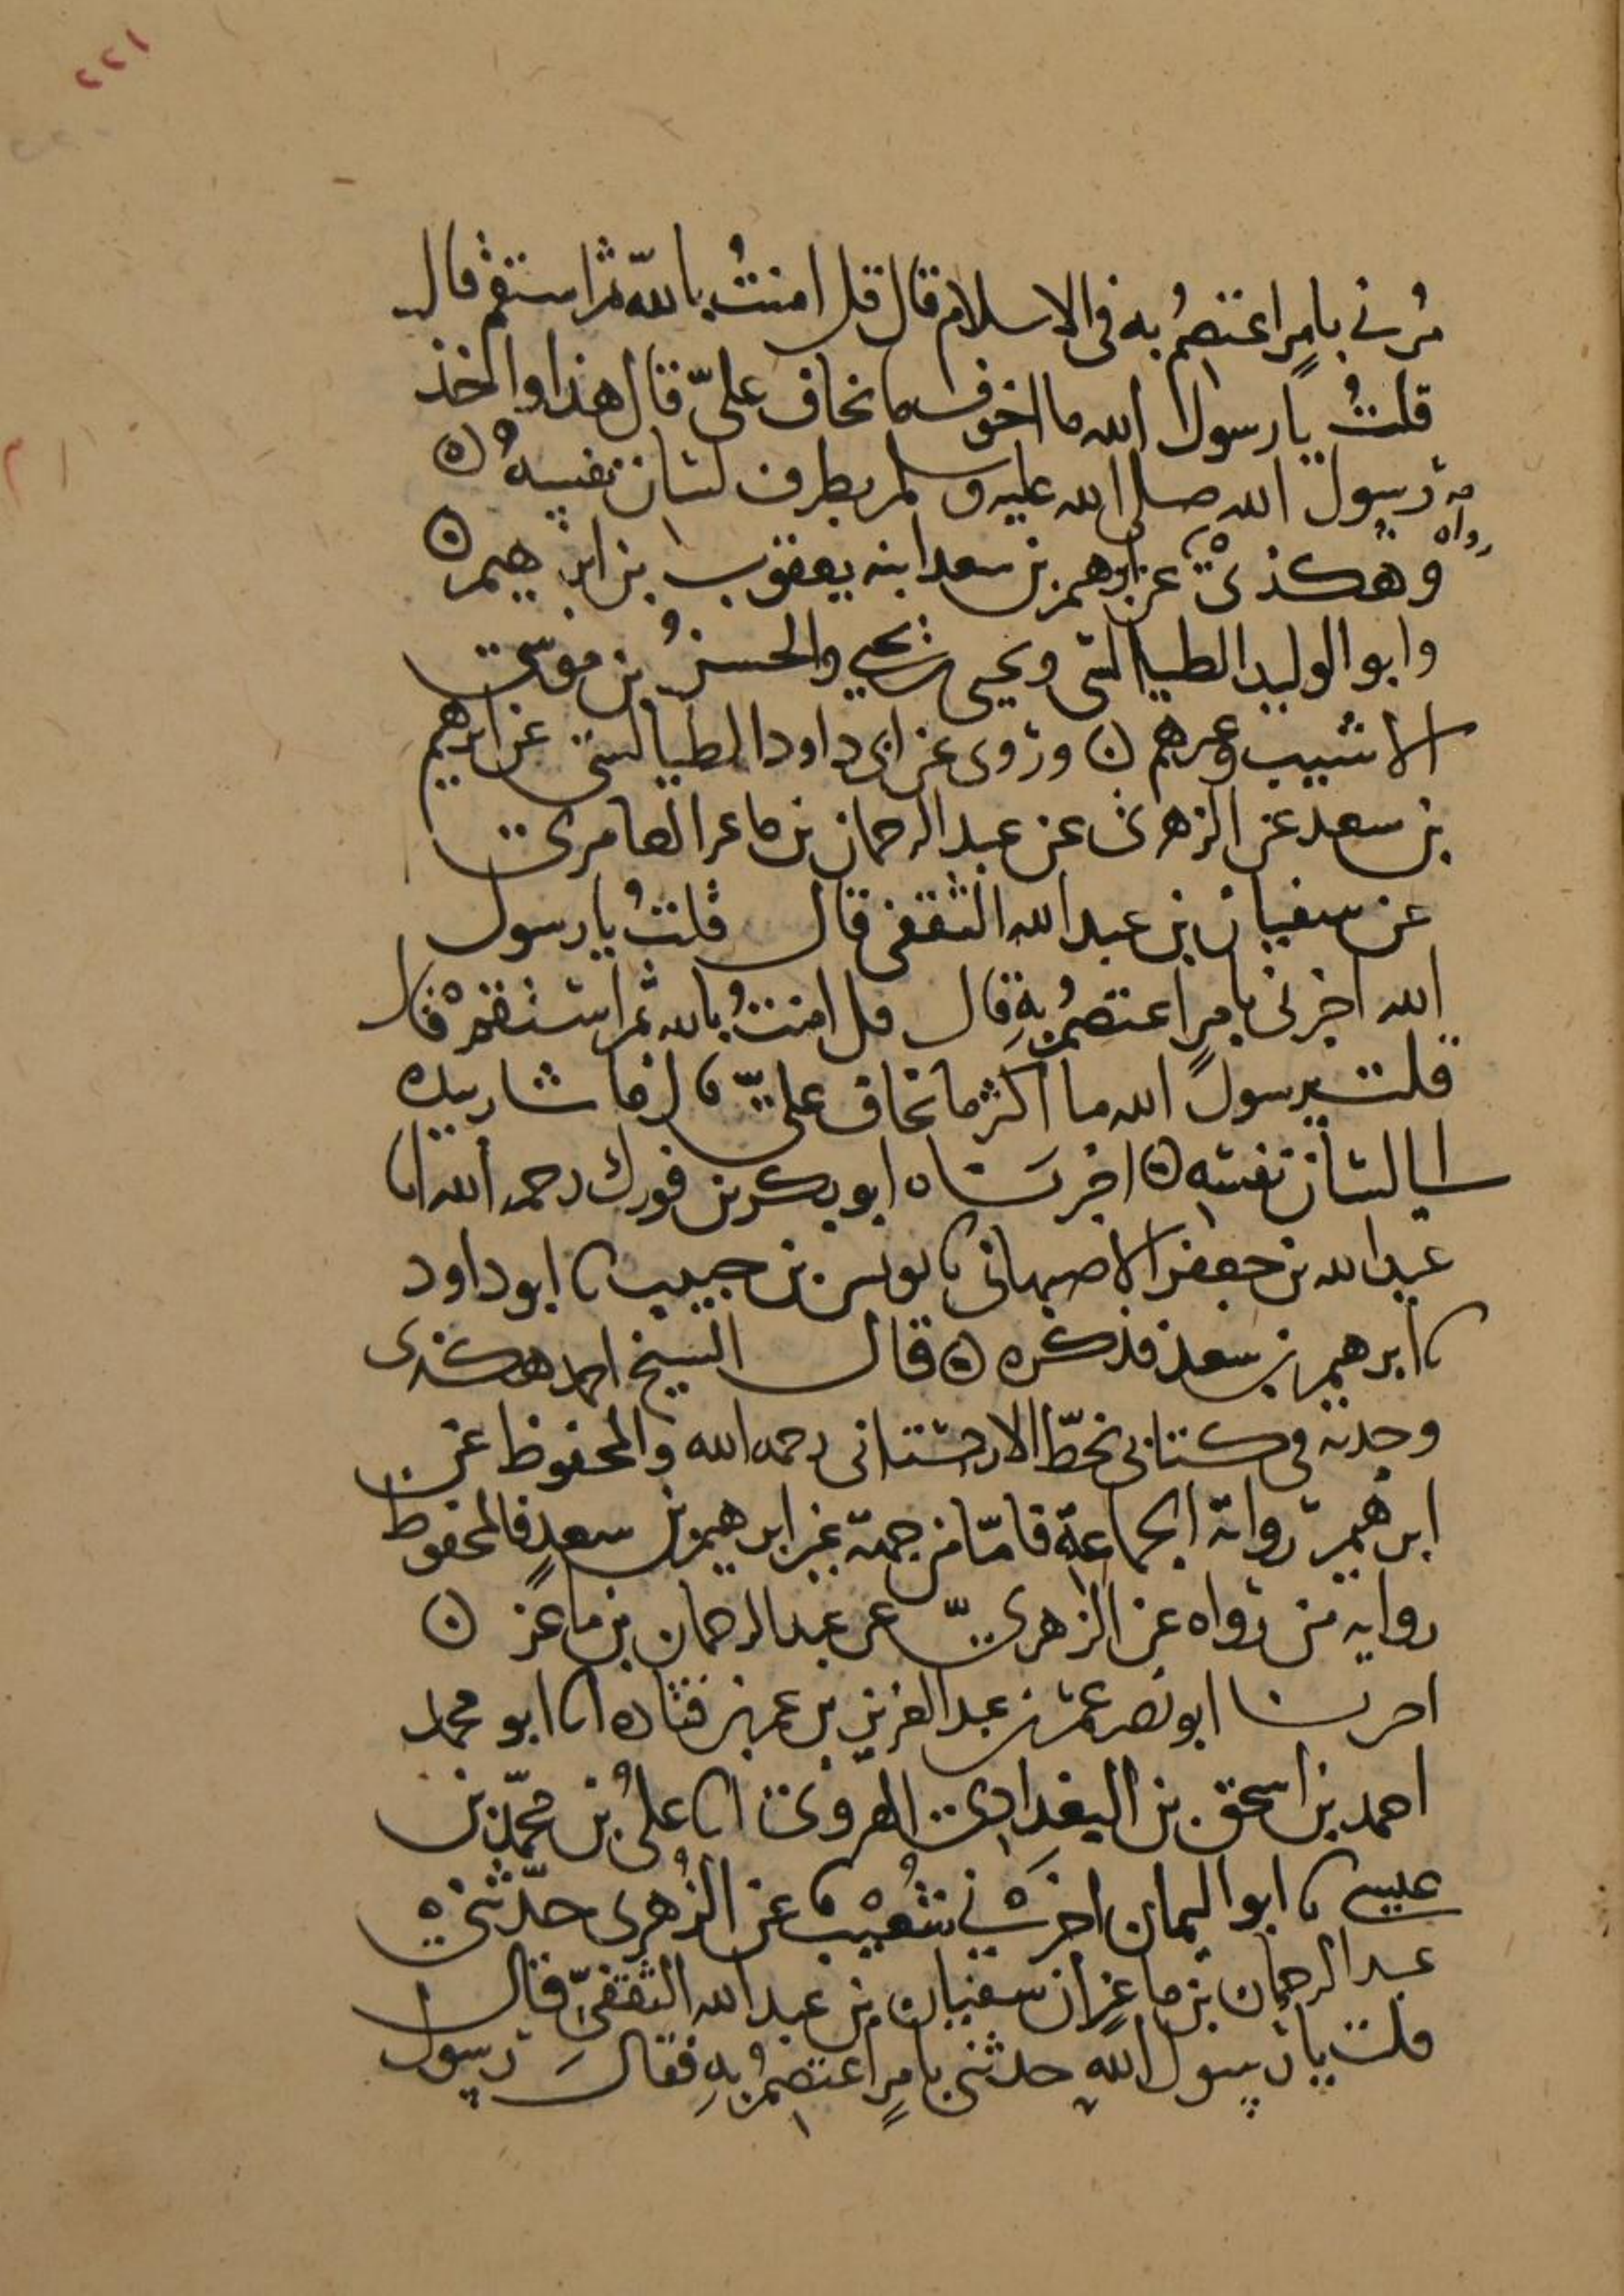 ١٢٢
مُرني بامرٍ اعتصمُ به في الاسلام قال قل امنتُ بالله ثم استقم قال
قلتُ يا رسول الله ما اخوف ما تخاف عليّ قال هذا واخذ
رسول الله صلى الله عليه وسلم بطرف لسان نفسه ه
رواه
وهكذى عن ابرهيم بن سعد ابنه يعقوب بن ابرهيم ه
وابو الوليد الطيالسي ويحيى بن يحيى والحسنُ بن موسى
الاشيب وغيرهم ه وروى عن ابي داود الطيالسي عن ابرهيم
بن سعد عن الزهري عن عبد الرحمان بن ماعز العامري
عن سفيان بن عبد الله الثقفي قال قلتُ يا رسول
الله اخبرني بامرٍ اعتصمُ بهِ قال قل امنتُ بالله ثم استقمْ قال
قلت يرسول الله ما اكثر ما تخاف عليّ قال فاشار بيده
الى لسان نفسه ه اخبرناه ابو بكر بن فورك رحمه الله انا
عبد الله بن جعفر الاصبهاني نا يونس بن حبيب نا ابو داود
نا ابرهيم بن سعد فذكره ه قال الشيخ احمد هكذى
وجدته في كتابي بخطّ الاردستاني رحمه الله والمحفوظ عن
ابرهيم رواية الجماعة فامّا من جهة غير ابرهيم بن سعدٍ فالمحفوظ
رواية من رواه عن الزهريّ عن عبد الرحمان بن ماعز ه
اخبرنا ابو نصر عمر بن عبد العزيز بن عمر بن قتاده انا ابو محمد
احمد بن اسحق بن البغدادي الهروي انا عليُ بن محمّد بن
عيسى نا ابو اليمان اخبرَني شُعيْب عن الزُهري حدّثني
عبد الرحمان بن ماعزٍ ان سفيان بن عبد الله الثقفيّ قال
قلت يا رسول اللهِ حدثني بامرٍ اعتصمُ بهِ فقالَ رسول